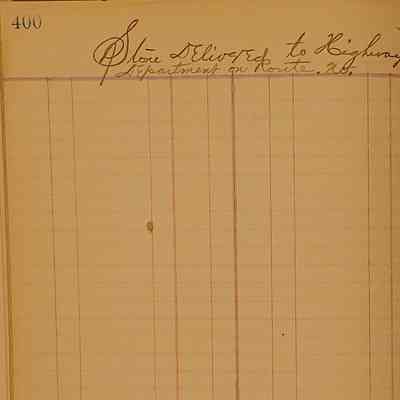 400
Stone Delivered to Highway
Department on Route. No.